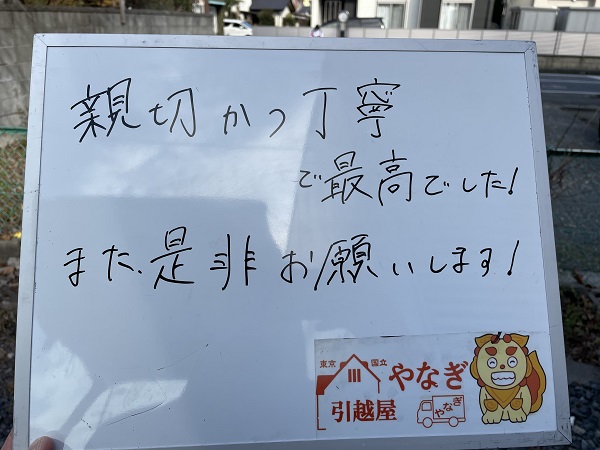 親切かつ丁寧
で最高でした!
また、是非お願いします!
東京 国立 やなぎ
引越屋 やなぎ